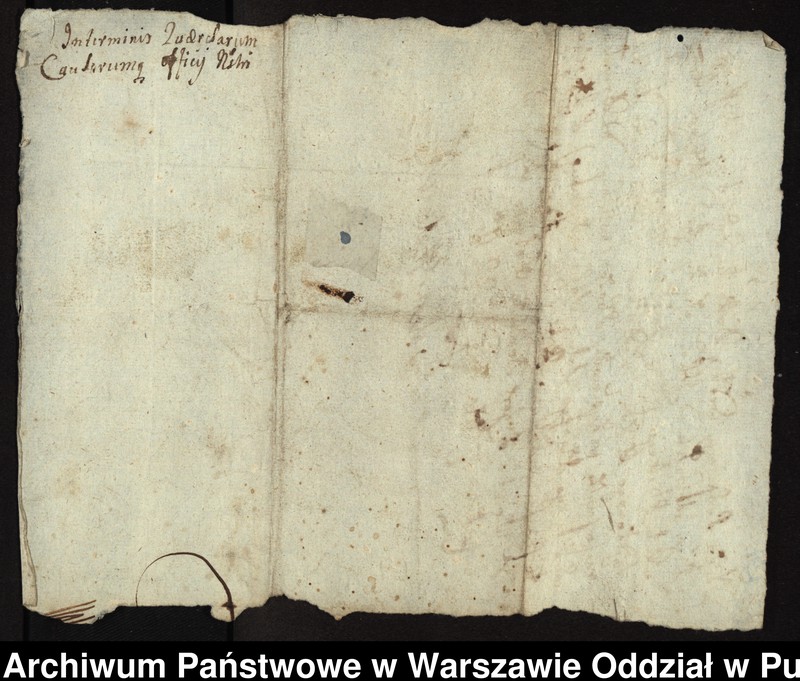 In terminis Quærelarum
Causarumq officij Nstri
Archiwum Państwowe w Warszawie Oddział w Pu